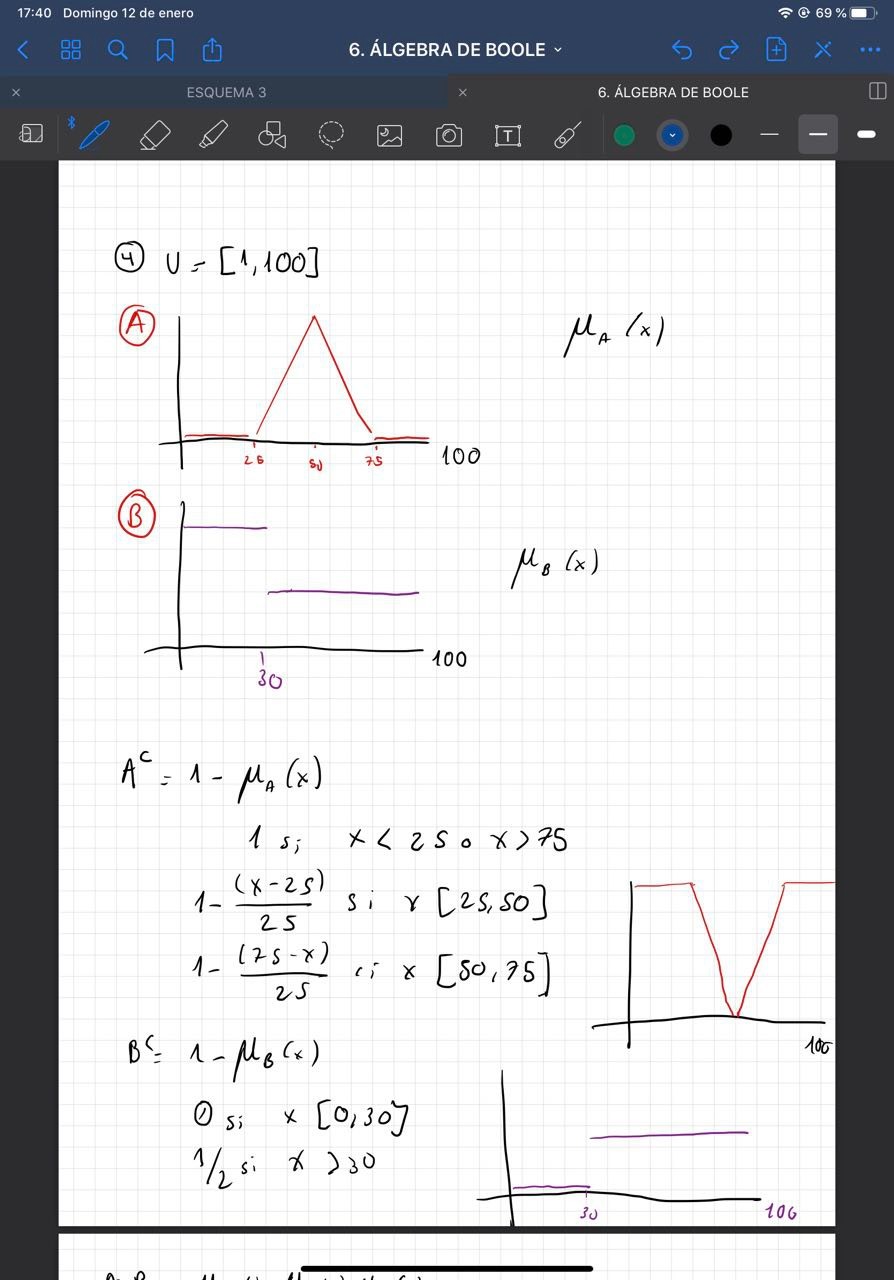 17:40 Domingo 12 de enero 69 %
6. ÁLGEBRA DE BOOLE
ESQUEMA 3
6. ÁLGEBRA DE BOOLE
T
④ U = [1,100]
A
μ_A (x)
25 50 75 100
B
μ_B (x)
30 100
A^c = 1 - μ_A (x)
1 si x < 25 o x > 75
1 - (x-25)/25 si x [25,50]
1 - (75-x)/25 si x [50,75]
100
B^c = 1 - μ_B (x)
0 si x [0,30]
1/2 si x > 30
30 100